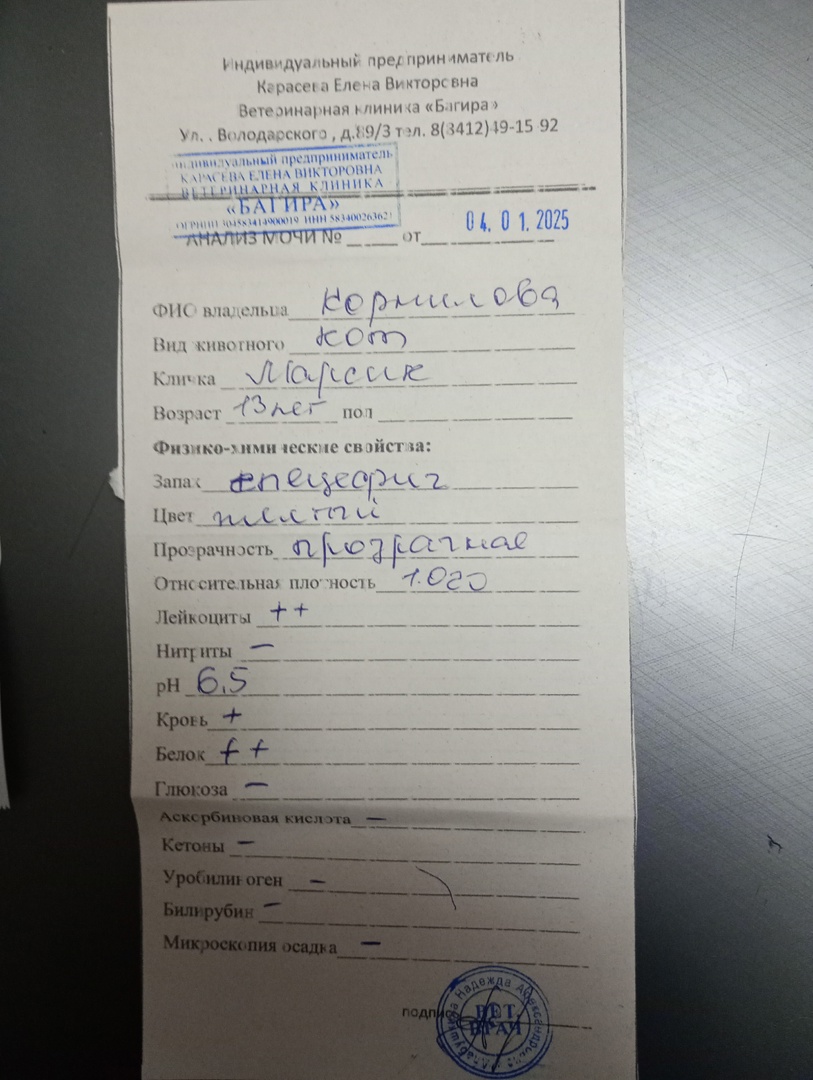 Индивидуальный предприниматель
Карасева Елена Викторовна
Ветеринарная клиника «Багира»
Ул. . Володарского , д.89/3 тел. 8(3412)49-15 92
Индивидуальный предприниматель
КАРАСЕВА ЕЛЕНА ВИКТОРОВНА
ВЕТЕРИНАРНАЯ КЛИНИКА
«БАГИРА»
АНАЛИЗ МОЧИ № от 04. 01. 2025
ФИО владельца Кормилова
Вид животного кот
Кличка Марсик
Возраст 13 лет пол
Физико-химические свойства:
Запах специфич
Цвет желтый
Прозрачность прозрачная
Относительная плотность 1.020
Лейкоциты ++
Нитриты —
pH 6,5
Кровь +
Белок ++
Глюкоза —
Аскорбиновая кислота —
Кетоны —
Уробилиноген —
Билирубин —
Микроскопия осадка —
подпись
ВЕТ.
ВРАЧ
Надежда Александровна